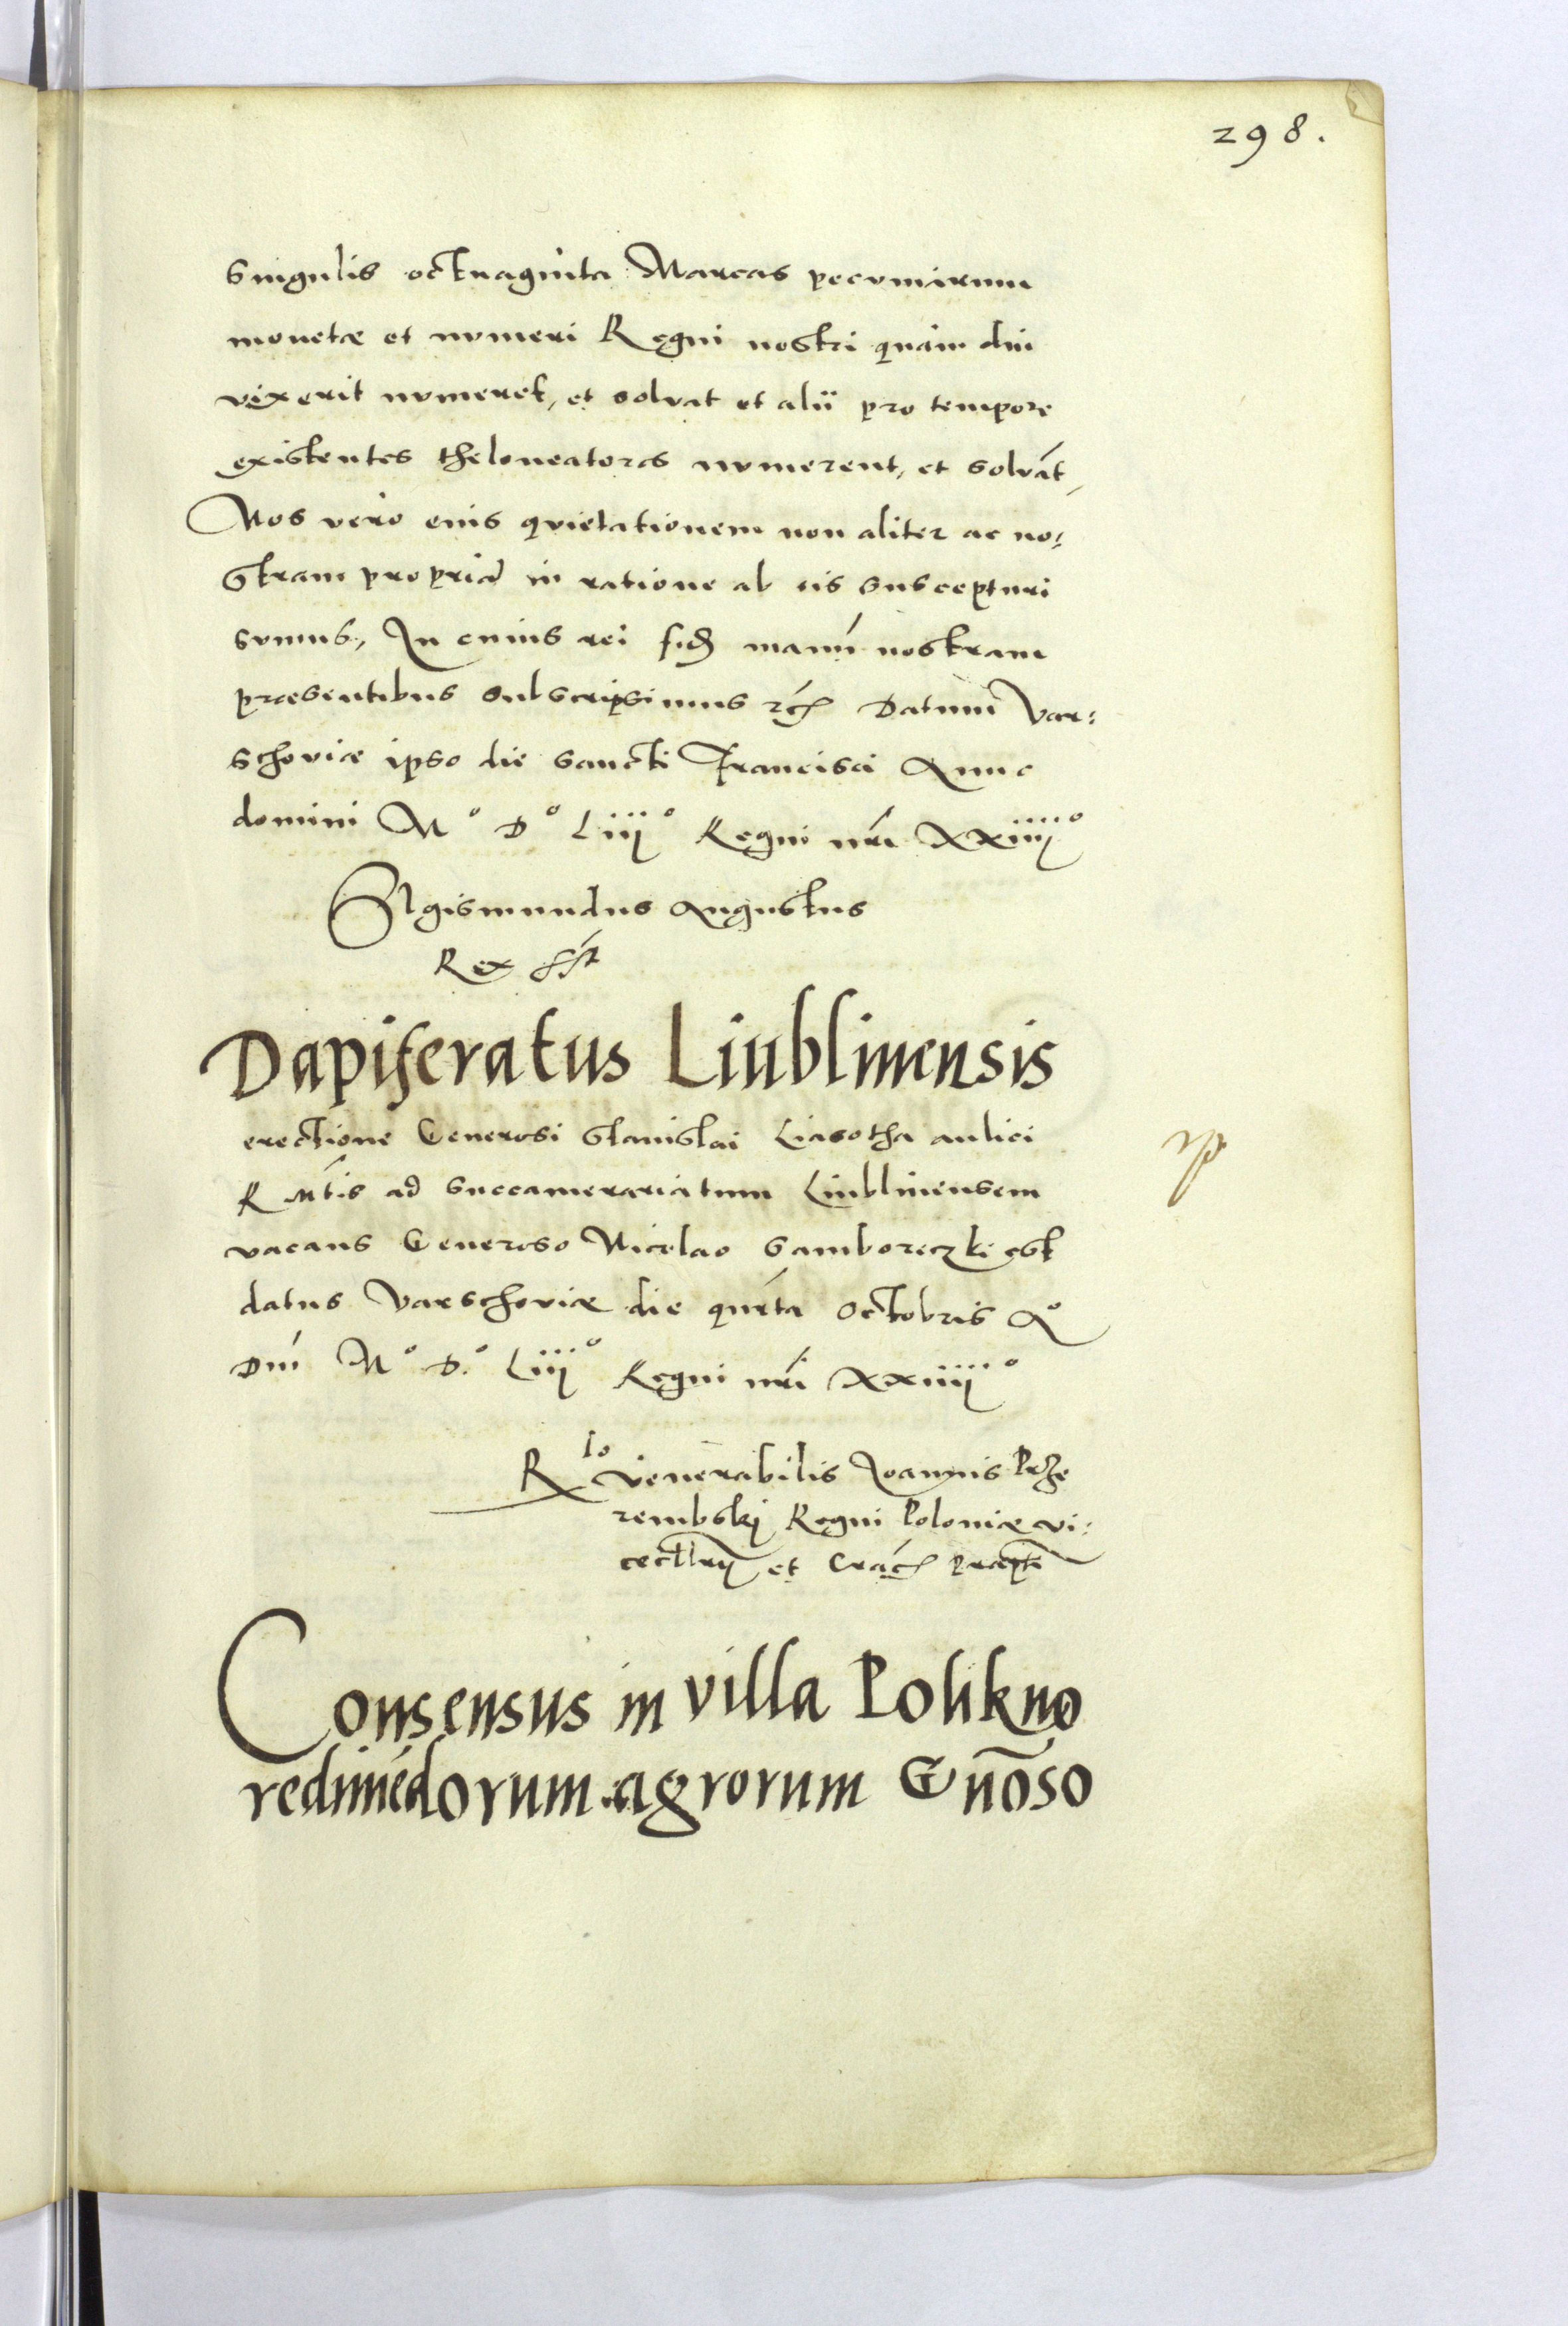 298.
singulis octuaginta Marcas pecuniarum
monetæ et numeri Regni nostri quàm diu
vixerit numeret, et solvat et alii pro tempore
existentes theloneatores numerent, et solvāt,
Nos vero eius quietationem non aliter ac no:
stram propriā in ratione ab eis suscepturi
sumus, In cuius rei fidē manū nostram
præsentibus subscripsimus etc̄ Datum Var:
schoviæ ipso die sancti Francisci Anno
domini M° D° Liij° Regni nrī XXiiij°
Sigismundus Augustus
Rex sst
Dapiferatus Liublinensis
erectione Generosi Stanislai Liasotha aulici
R Mtis ad succamerariatum Liublinensem
vacans Generoso Nicolao Samboreczki est
datus Varschoviæ die quīta Octobris A°
Dnī M° D.° Liij° Regni nrī XXiiij°
Rlo Venerabilis Joannis Prze
rembskj Regni Poloniæ vi:
cecllrij et Crac̄ præpti
Consensus in villa Poliкno
redimēdorum agrorum Gnōso